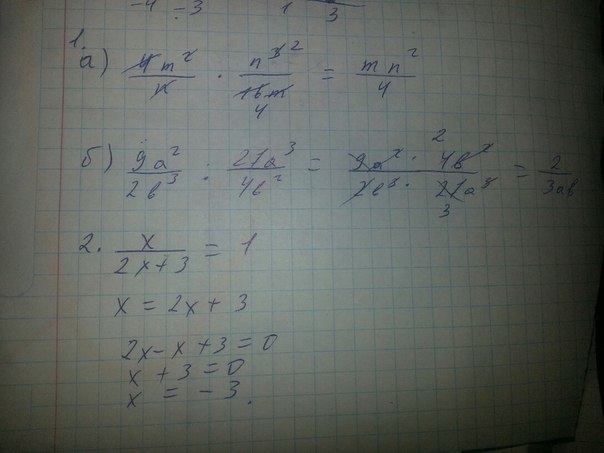 -4 -3 1 3
1.
а) 4m²/n · n³/16m = mn²/4
б) 9a²/2b³ : 21a³/4b² = 9a² · 4b²/2b³ · 21a³ = 2/3ab
2. x/2x+3 = 1
x = 2x + 3
2x - x + 3 = 0
x + 3 = 0
x = -3.